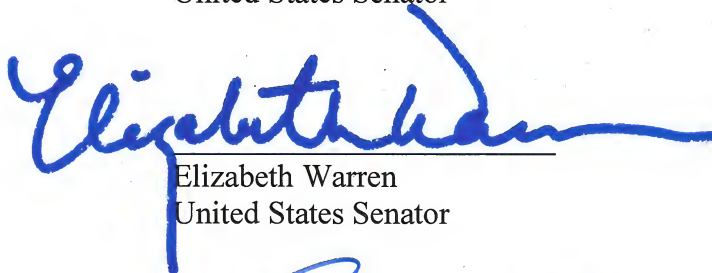 United States Senator
Elizabeth Warren
Elizabeth Warren
United States Senator